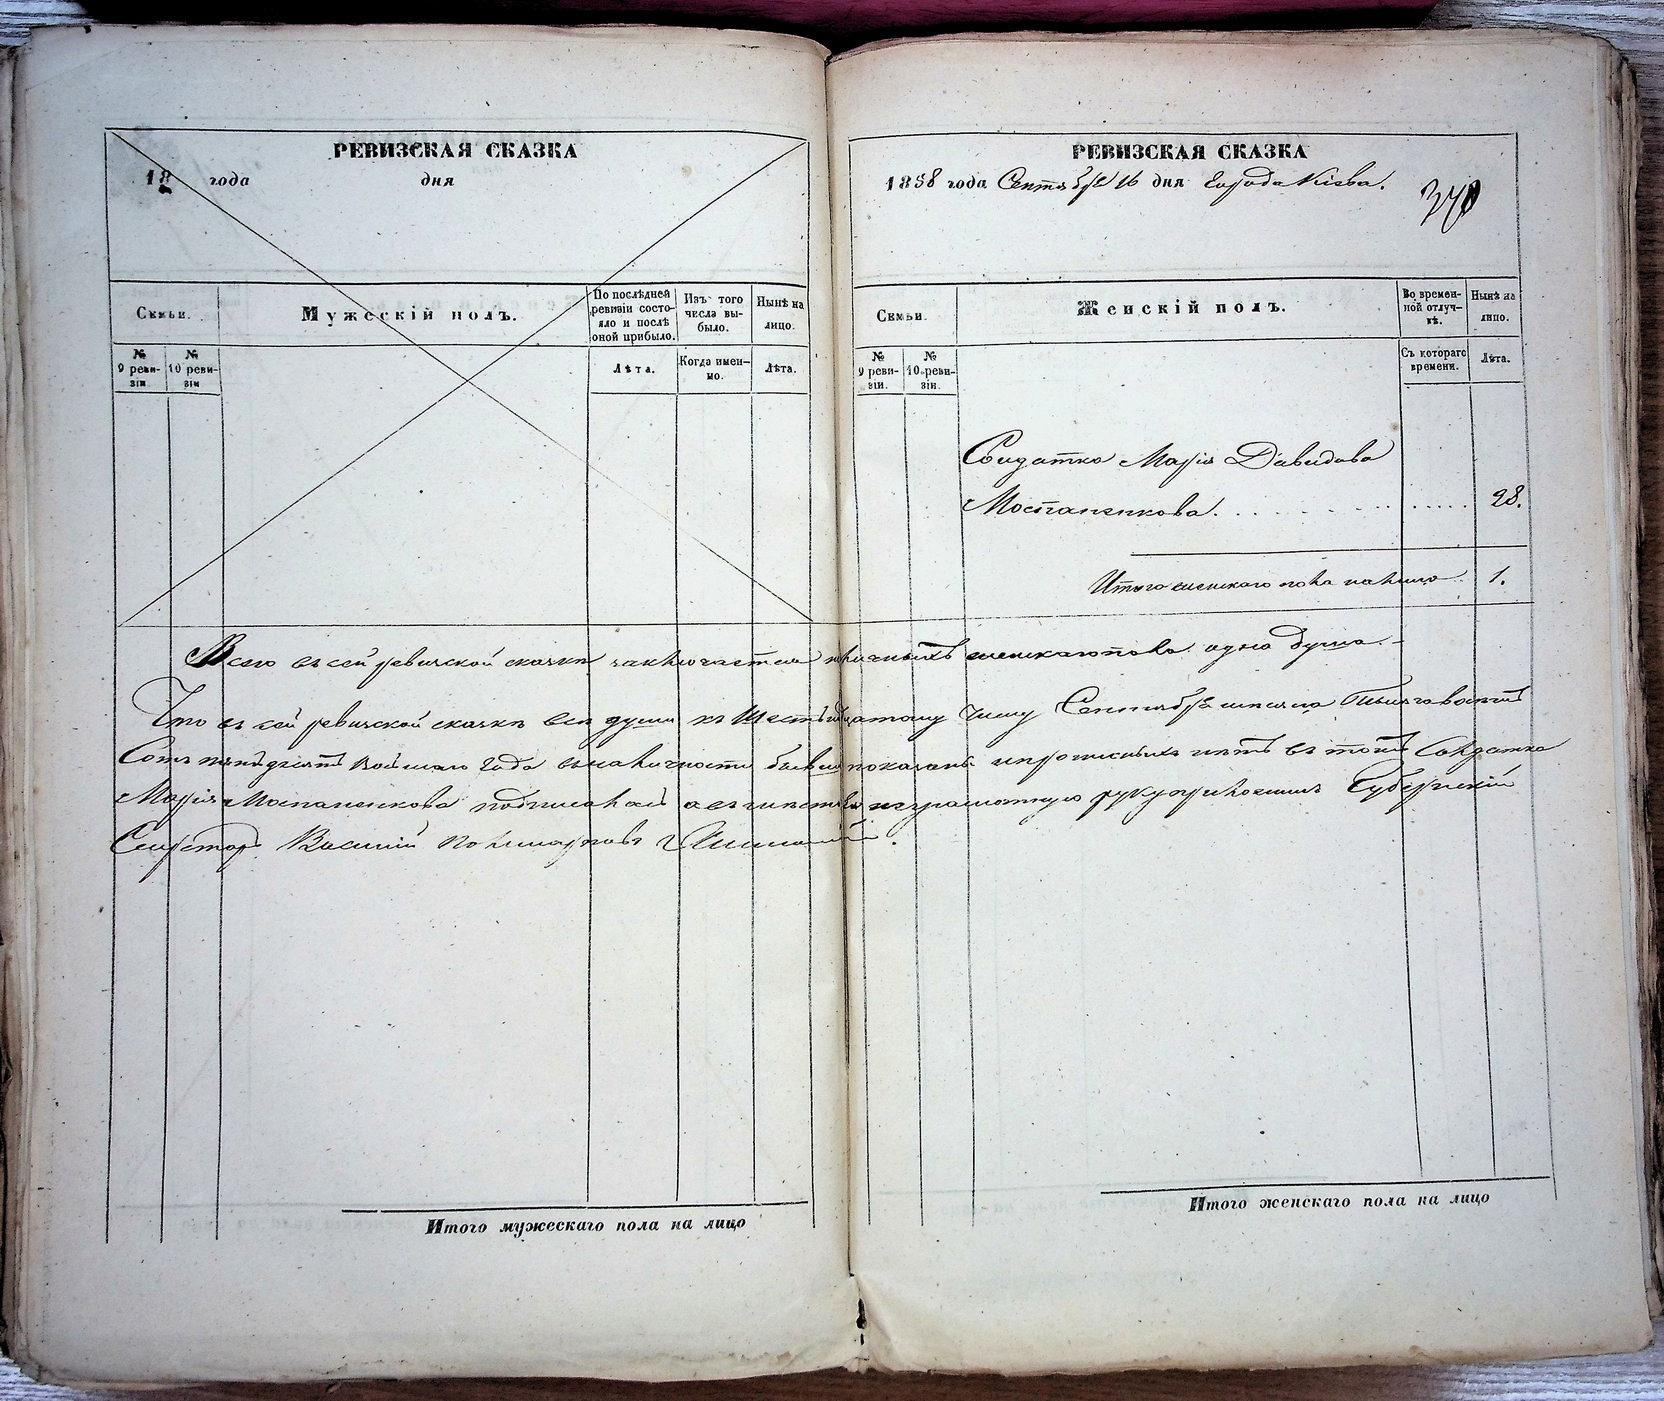 РЕВИЗСКАЯ СКАЗКА
18 года дня
Семьи.
Мужескій полъ.
По послѣдней ревизіи состояло и послѣ оной прибыло.
Изъ того числа выбыло.
Нынѣ на лицо.
№ 9 ревизіи
№ 10 ревизіи
Лѣта.
Когда именно.
Лѣта.
РЕВИЗСКАЯ СКАЗКА
1858 года Сентября 16 дня Города Кіева.
370
Семьи.
Женскій полъ.
Во временной отлучкѣ.
Нынѣ на лицо.
№ 9 ревизіи.
№ 10 ревизіи.
Съ котораго времени.
Лѣта.
Солдатка Марія Давидова
Мостаненкова. 28.
Итого женскаго пола на лицо 1.
Всего въ сей ревизской сказкѣ заключается наличныхъ женскаго пола одна душа.
Что въ сей ревизской сказкѣ все души къ Шестнадцатому числу Сентября Тысяча восемь
Сотъ пятьдесятъ восьмаго года въ наличности бывшіе показаны и прописныхъ нѣтъ въ томъ Солдатка
Марія Мостаненкова подписалась а вместо неграмотную руку приложилъ Губернскій
Секретарь Василій
Итого мужескаго пола на лицо
Итого женскаго пола на лицо